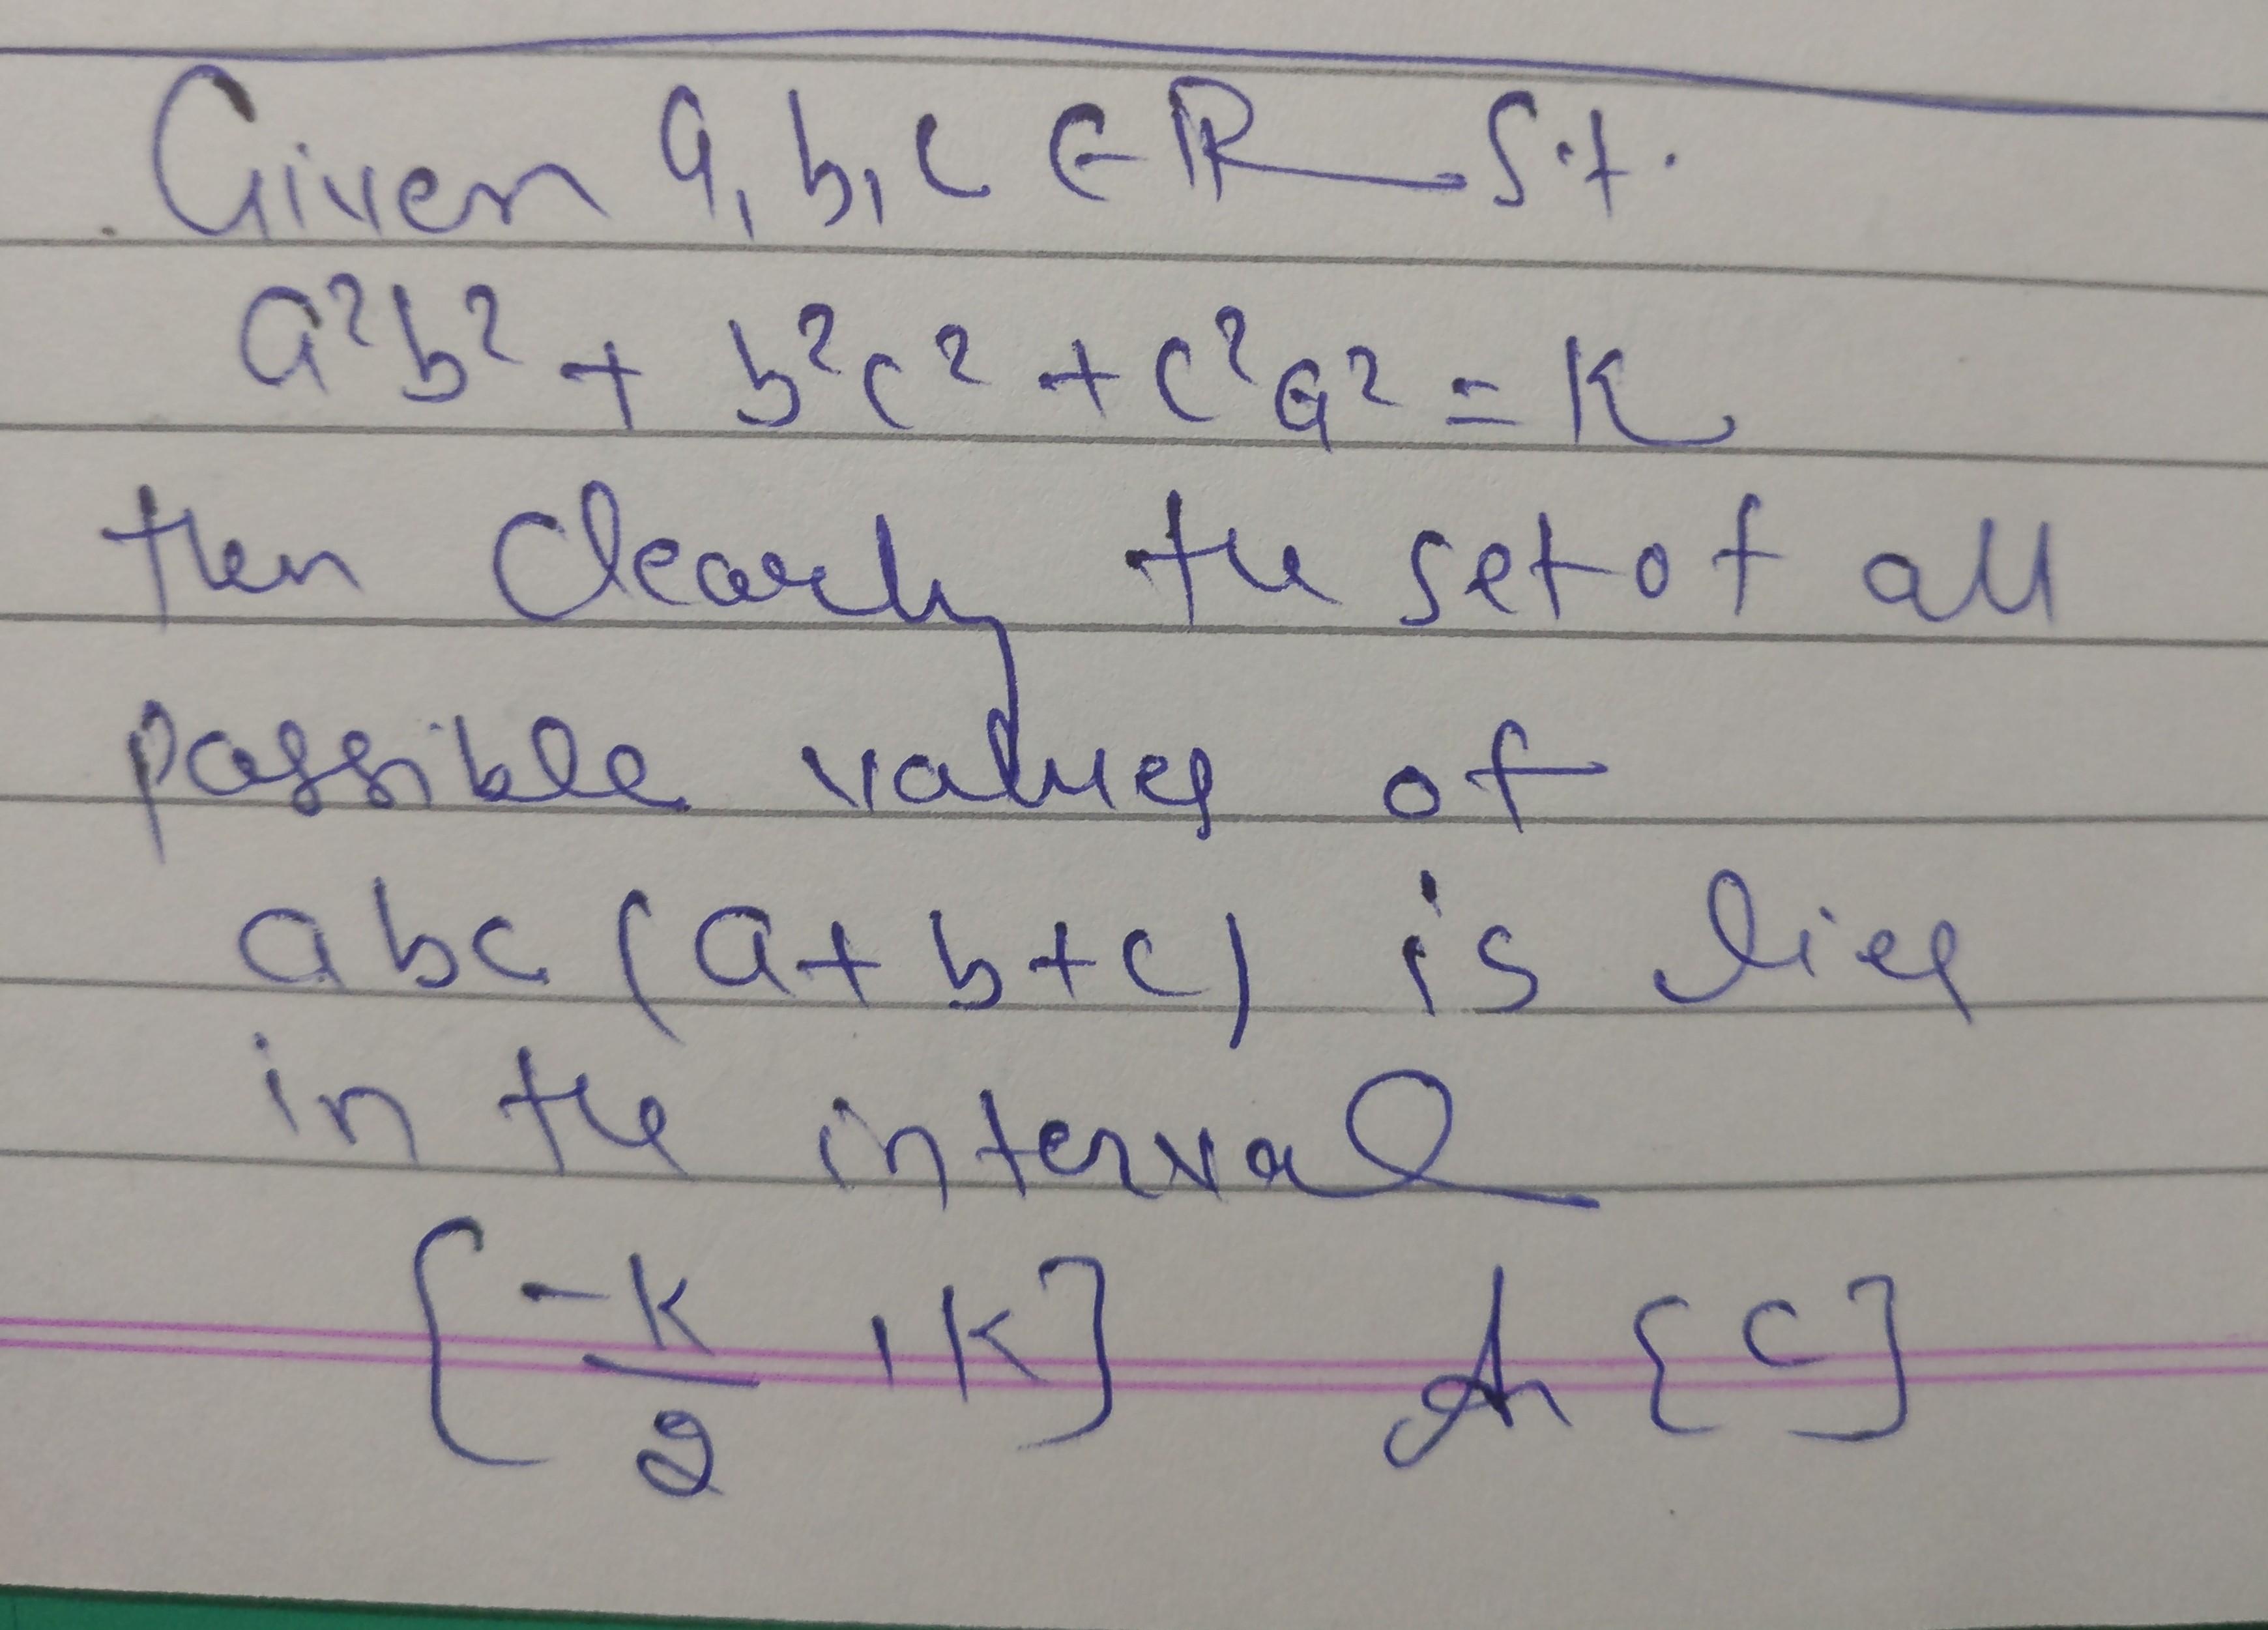 Given a, b, c ∈ ℝ s.t.
a²b² + b²c² + c²a² = K
then clearly the set of all
possible values of
abc (a+b+c) is lies
in the interval
[-K/2, K] An [C]